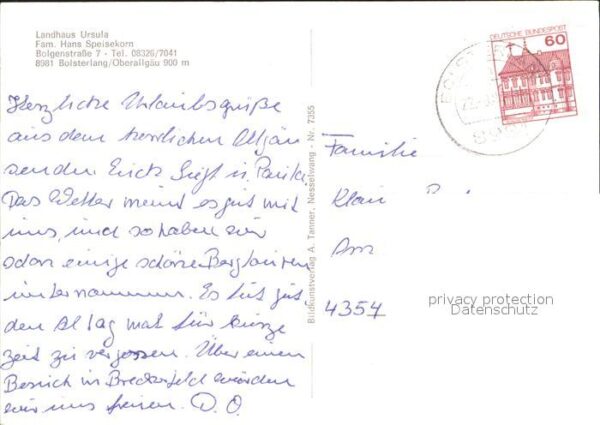 Landhaus Ursula
Fam. Hans Speisekorn
Bolgenstraße 7 - Tel. 08326/7041
8981 Bolsterlang/Oberallgäu 900 m
DEUTSCHE BUNDESPOST
60
Herzliche Urlaubsgrüße
aus dem herrlichen Allgäu
senden Euch
Das Wetter meint es gut mit
uns, und so haben wir
schon einige schöne Bergtouren
unternommen. Es tut gut,
den Alltag mal für kurze
Zeit zu vergessen. Über einen
Besuch in Breckerfeld würden
wir uns freuen. D. O.
Bildkunstverlag A. Tanner, Nesselwang - Nr. 7355
Familie
Klein
Am
4354
privacy protection
Datenschutz